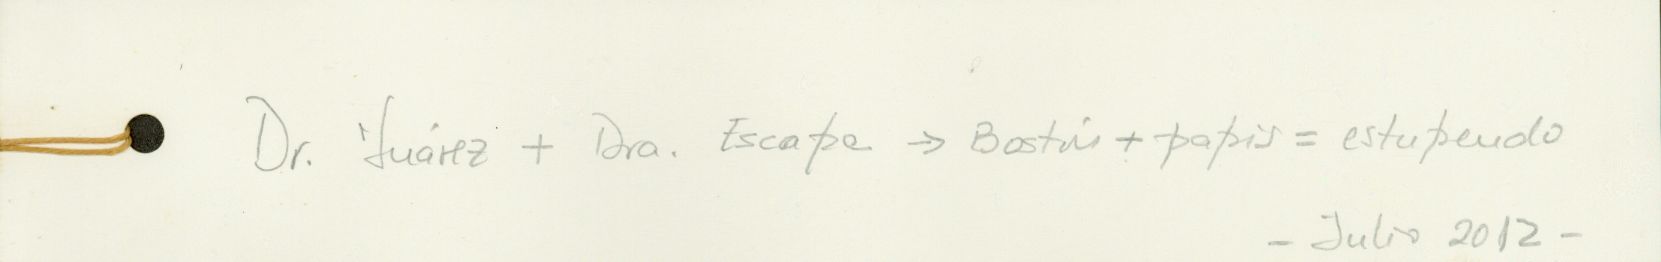 Dr. Juárez + Dra. Escape → Bostón + papis = estupendo
- Julio 2012 -